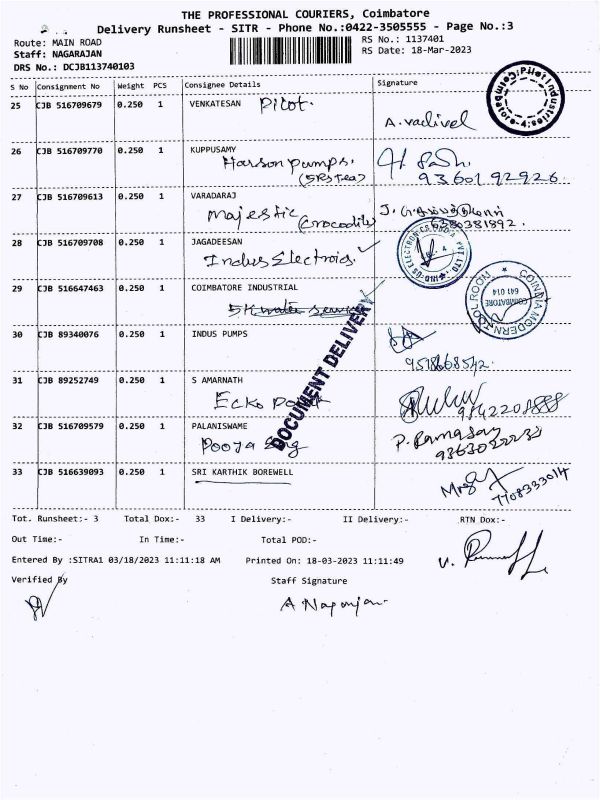 THE PROFESSIONAL COURIERS, Coimbatore
Delivery Runsheet - SITR - Phone No.:0422-3505555 - Page No.:3
Route: MAIN ROAD
RS No.: 1137401
Staff: NAGARAJAN
RS Date: 18-Mar-2023
DRS No.: DCJB113740103
S No Consignment No Weight PCS Consignee Details Signature
25 CJB 516709679 0.250 1 VENKATESAN Pilot.
A. vadivel
26 CJB 516709770 0.250 1 KUPPUSAMY
Harson pumps.
93601 92926
27 CJB 516709613 0.250 1 VARADARAJ
Majestic (Crocodile)
6380381892.
28 CJB 516709708 0.250 1 JAGADEESAN
Indus Electroids.
29 CJB 516647463 0.250 1 COIMBATORE INDUSTRIAL
COINDIA MODERN TOOL ROOM
COIMBATORE
641 014
30 CJB 89340076 0.250 1 INDUS PUMPS
DOCUMENT DELIVERY
31 CJB 89252749 0.250 1 S AMARNATH
Ecko
9842208888
32 CJB 516709579 0.250 1 PALANISWAME
Pooja Eng
P. Ramasay
33 CJB 516639093 0.250 1 SRI KARTHIK BOREWELL
7708333014
Tot. Runsheet:- 3 Total Dox:- 33 I Delivery:- II Delivery:- RTN Dox:-
Out Time:- In Time:- Total POD:-
Entered By :SITRA1 03/18/2023 11:11:18 AM Printed On: 18-03-2023 11:11:49
Verified By Staff Signature
A Nagarajan